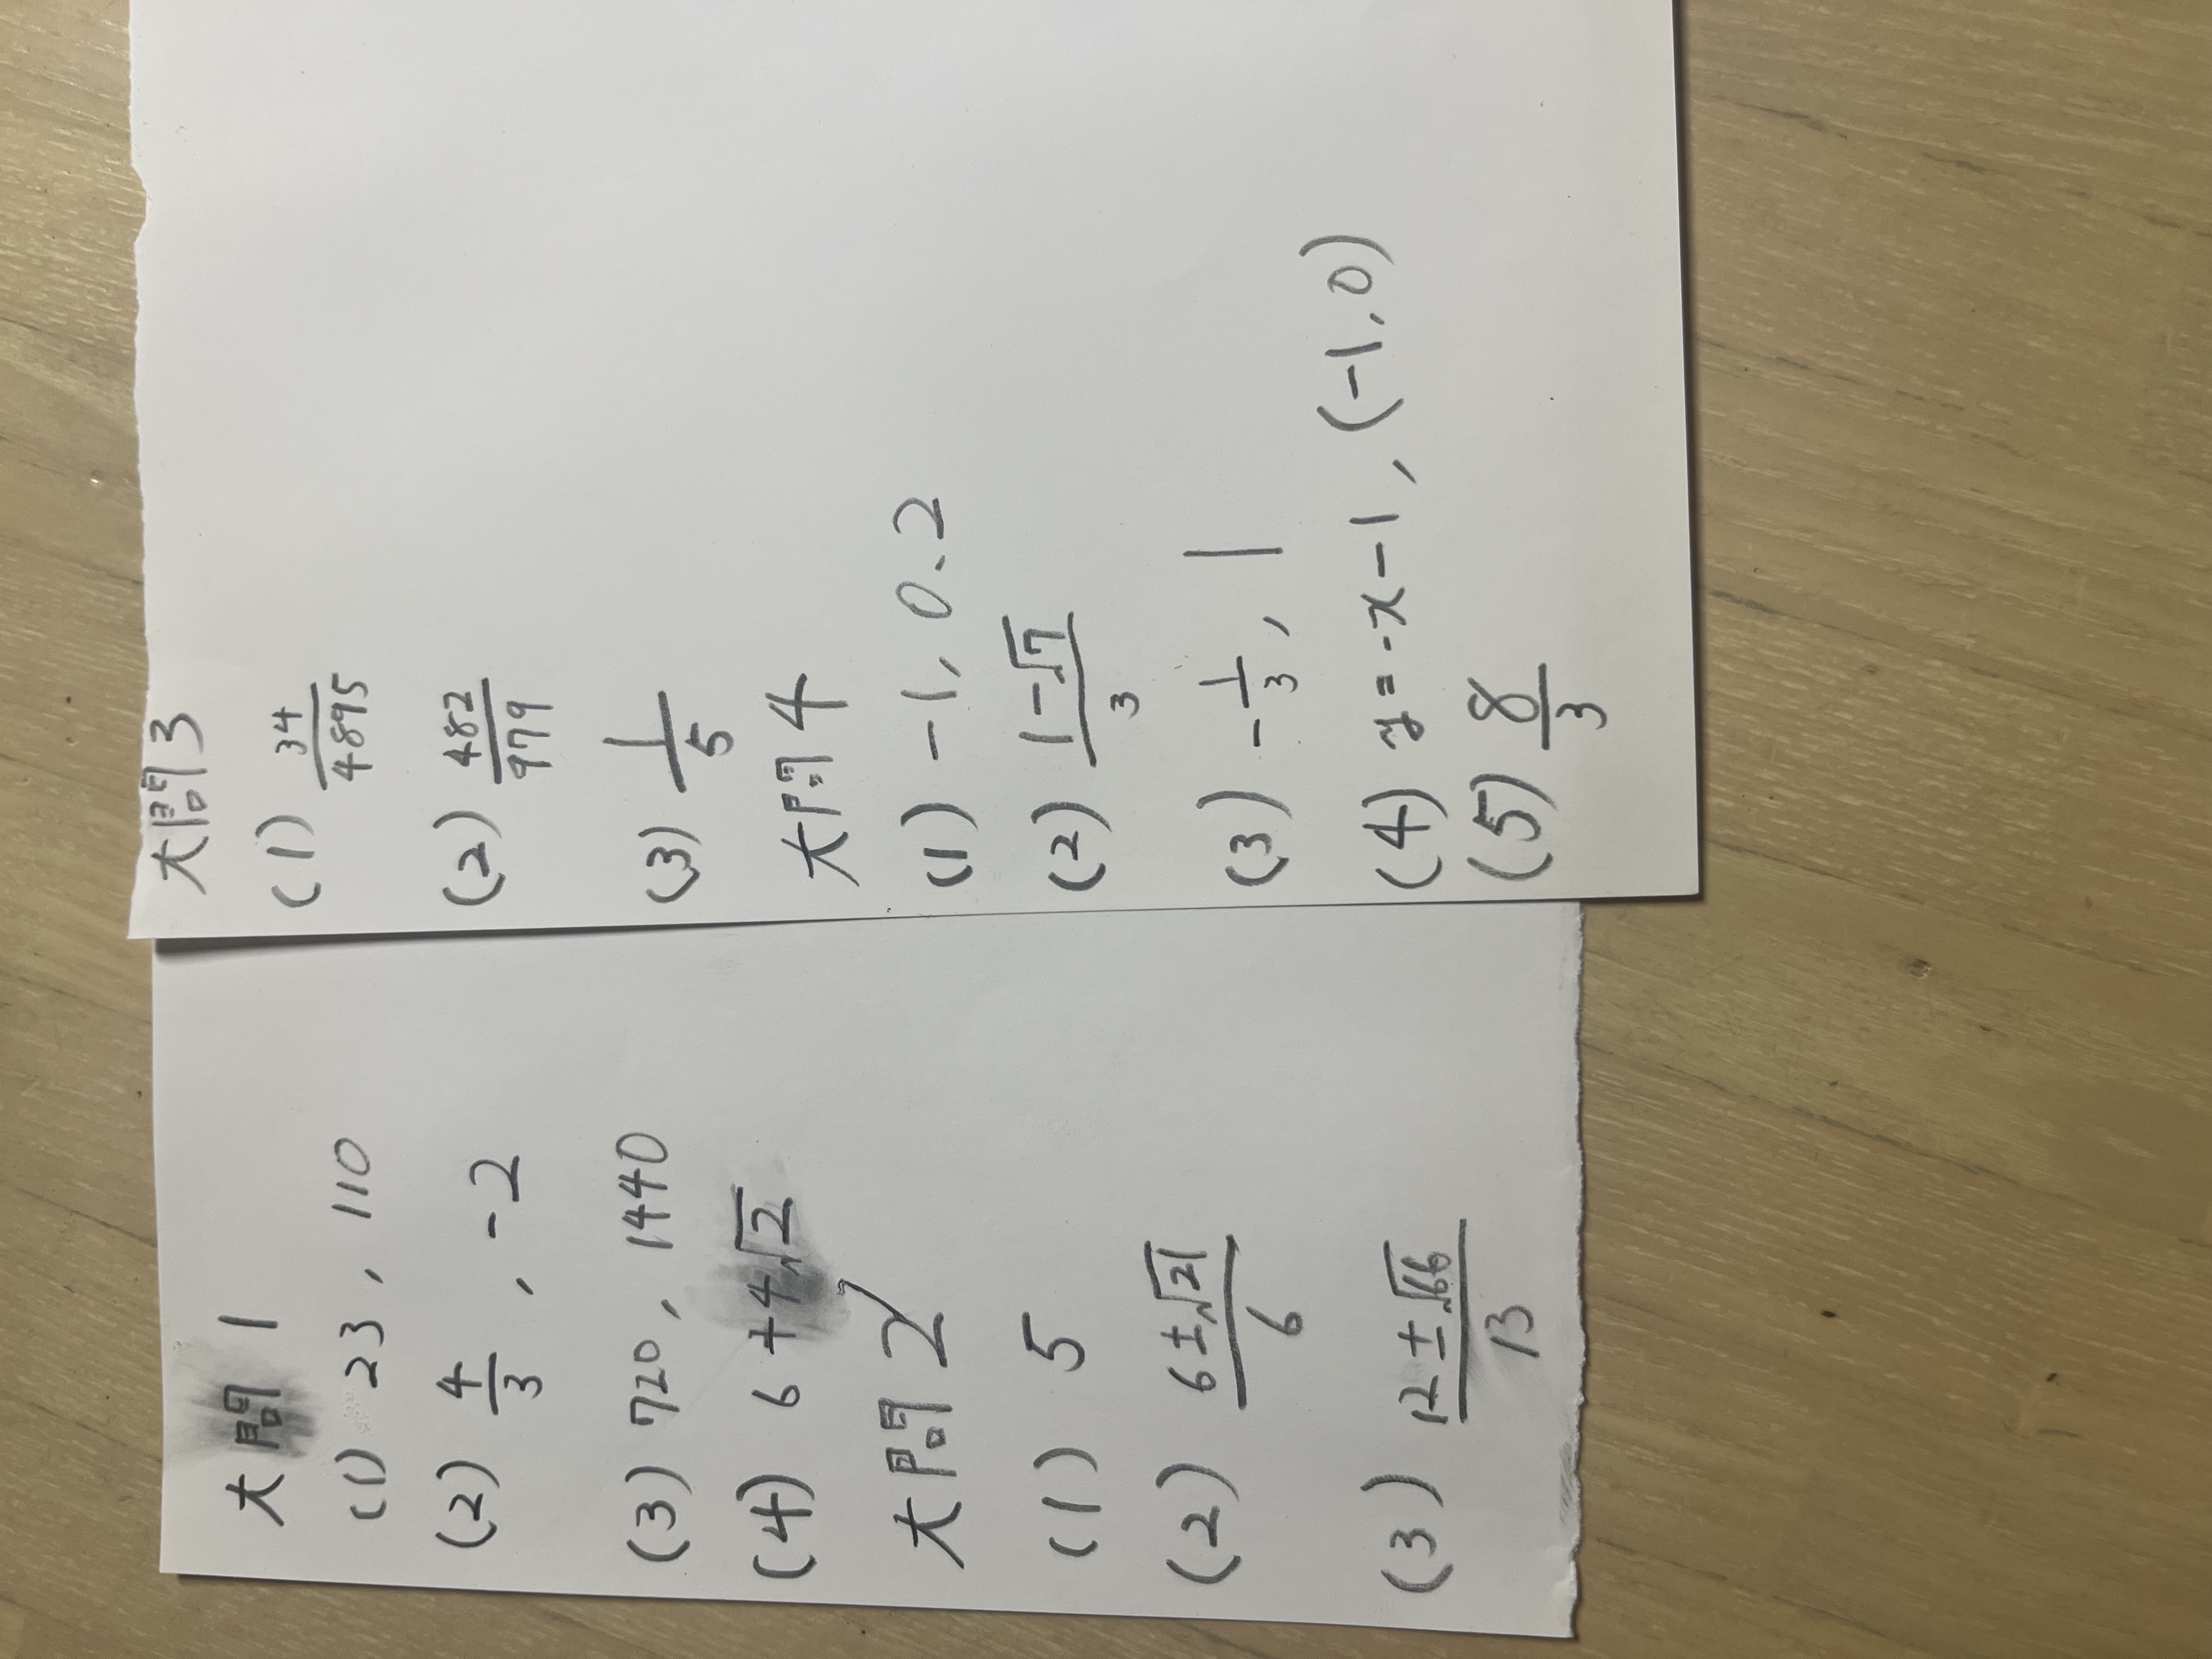 大問1
(1) 23, 110
(2) 4/3, -2
(3) 720, 1440
(4) 6+4√2
大問2
(1) 5
(2) 6±√21/6
(3) 12±√66/13
大問3
(1) 34/4895
(2) 482/979
(3) 1/5
大問4
(1) -1, 0.2
(2) 1-√7/3
(3) -1/3, 1
(4) y=-x-1, (-1,0)
(5) 8/3